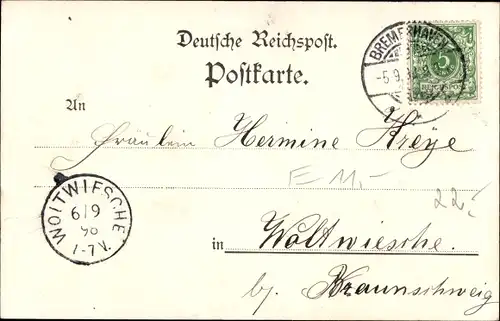 Deutsche Reichspost.
Postkarte.
BREMERHAVEN
-5.9.
5
REICHSPOST
An
Fräulein Hermine Kreÿe
E 11,-
22,-
WOITWIESCHE
6/9
1-7V.
in Woltwiesche.
by. Braunschweig